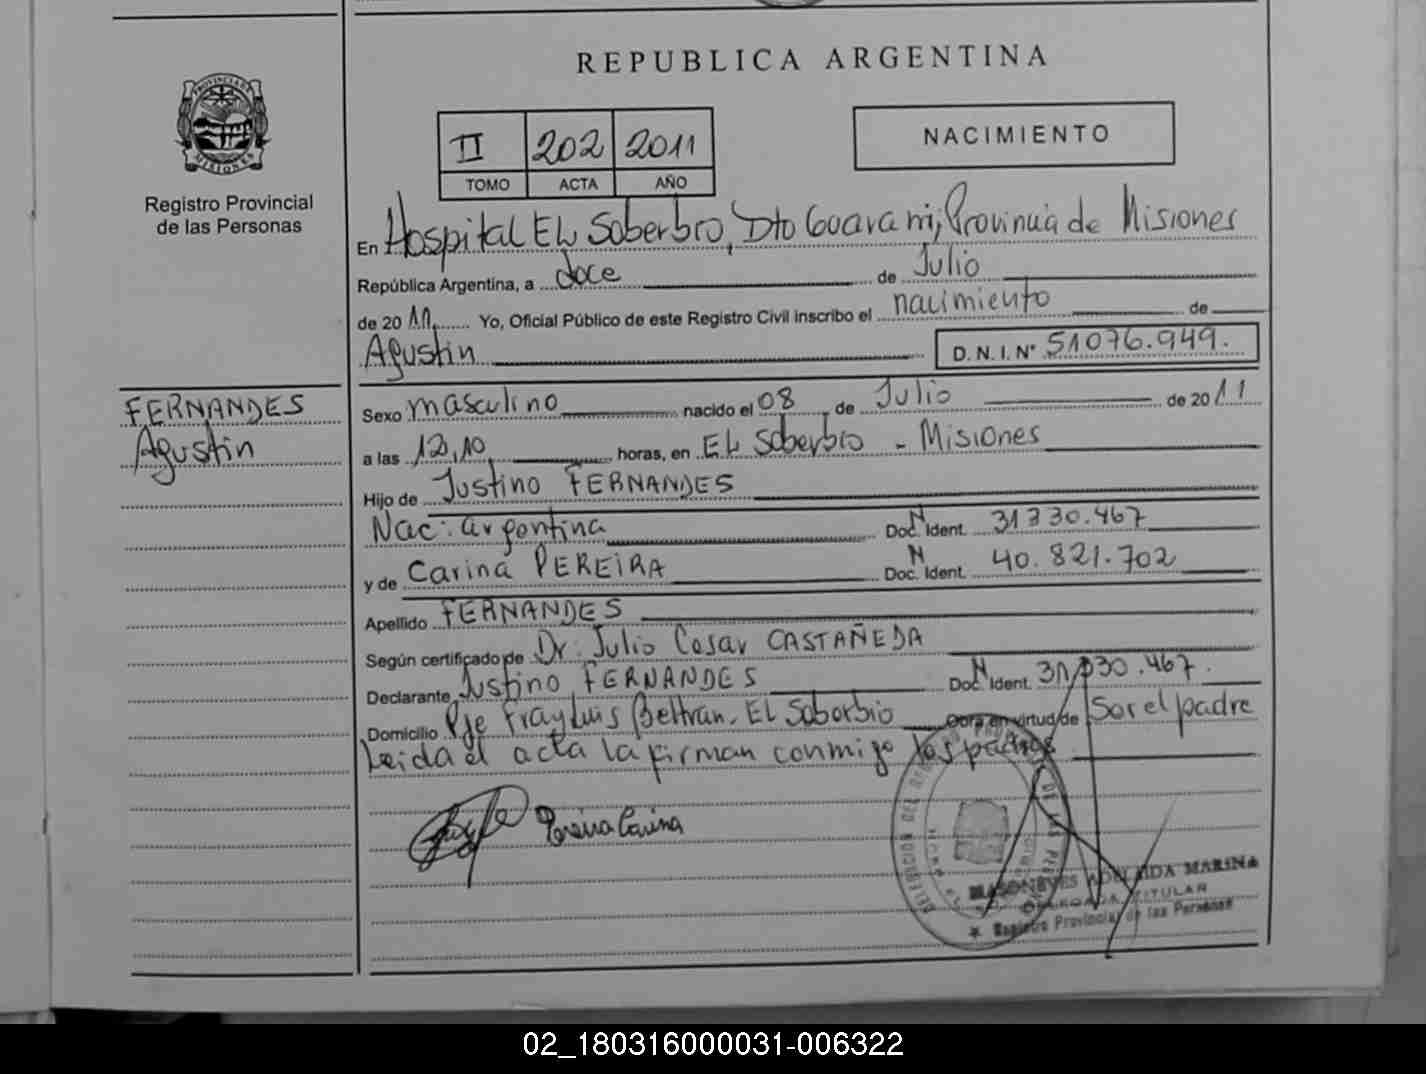 REPUBLICA ARGENTINA
PROVINCIA DE
MISIONES
Registro Provincial
de las Personas
II 202 2011
TOMO ACTA AÑO
NACIMIENTO
En Hospital EL Soberbio, Dto Guarani, Provincia de Misiones
República Argentina, a doce de Julio
de 2011. Yo, Oficial Público de este Registro Civil inscribo el nacimiento de
Agustin D. N. I. Nº 51076.949.
FERNANDES
Agustin
Sexo masculino nacido el 08 de Julio de 2011
a las 12,10 horas, en EL Soberbio - Misiones
Hijo de Justino FERNANDES
Nac: argentina Doc. Ident. N 31330.467
y de Carina PEREIRA Doc. Ident. N 40.821.702
Apellido FERNANDES
Según certificado de Dr. Julio Cesar CASTAÑEDA
Declarante Justino FERNANDES Doc. Ident. N 31330.467.
Domicilio Pje Fray Luis Beltran. EL Soberbio Obra en virtud de Ser el padre
Leida el acta la firman conmigo los padres
Pereira Carina
ADELAIDA MARINA
DELEGADA TITULAR
Registro Provincial de las Personas
02_180316000031-006322